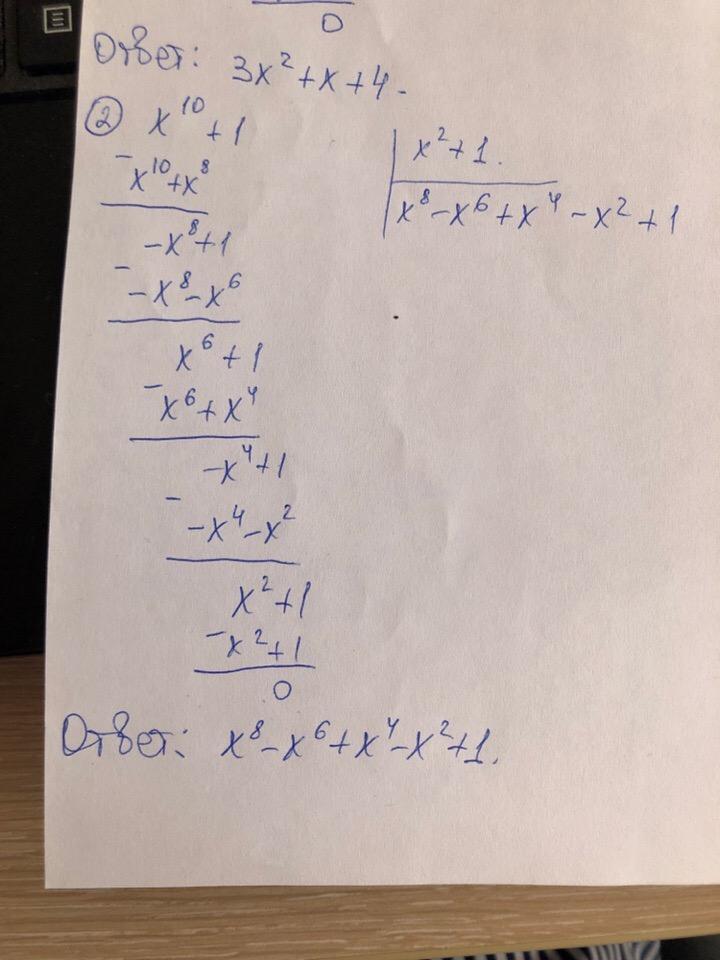 0
Ответ: 3x² + x + 4.
② x¹⁰ + 1 | x² + 1.
- x¹⁰ + x⁸ | x⁸ - x⁶ + x⁴ - x² + 1
-x⁸ + 1
- -x⁸ - x⁶
x⁶ + 1
- x⁶ + x⁴
-x⁴ + 1
- -x⁴ - x²
x² + 1
- x² + 1
0
Ответ: x⁸ - x⁶ + x⁴ - x² + 1.